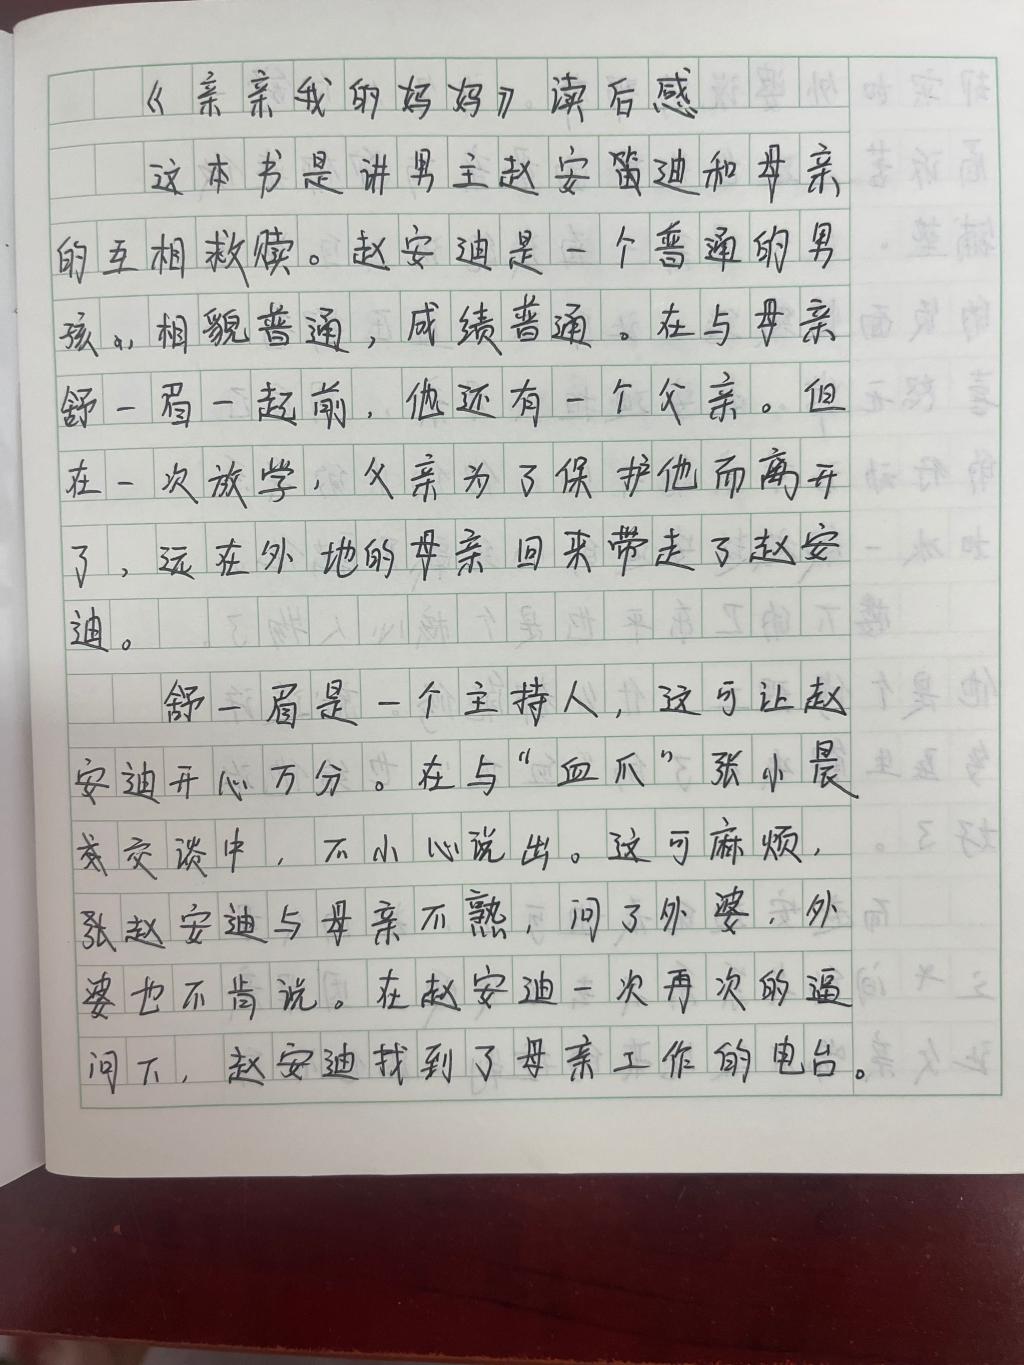 《亲亲我的妈妈》读后感
这本书是讲男主赵安迪和母亲
的互相救赎。赵安迪是一个普通的男
孩，相貌普通，成绩普通。在与母亲
舒一眉一起前，他还有一个父亲。但
在一次放学，父亲为了保护他而离开
了，远在外地的母亲回来带走了赵安
迪。
舒一眉是一个主持人，这可让赵
安迪开心万分。在与“血爪”张小晨
交谈中，不小心说出。这可麻烦，
赵安迪与母亲不熟，问了外婆，外
婆也不肯说。在赵安迪一次再次的逼
问下，赵安迪找到了母亲工作的电台。